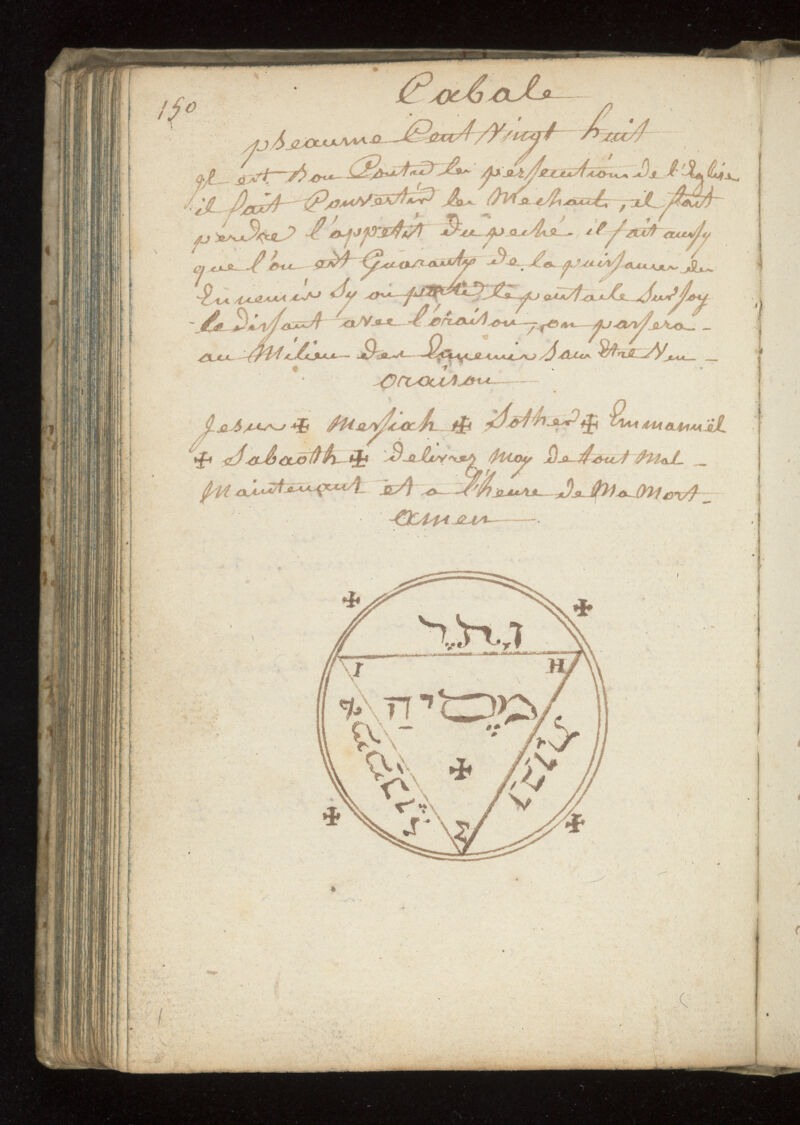 150
Cabale
pseaume Cent Vingt huit
Il est Bon Contre les persecutions de l'Eglise
il fait Convertir les Mechants, il fait
perdre l'appetit du peché. il fait aussy
que l'on est Guaranty de la puissance des
Ennemis Sy on porte le pentacle Sur soy
le disant avec l'oraison, on passera
au Milieu des Ennemis Sans Etre Veu
oraison
Jesus ✠ Messiah ✠ Sother ✠ Emmanuël
✠ Sabaoth ✠ delivrez Moy de tout Mal
Maintenant et a l'heure de Ma Mort
amen
I
H
Σ